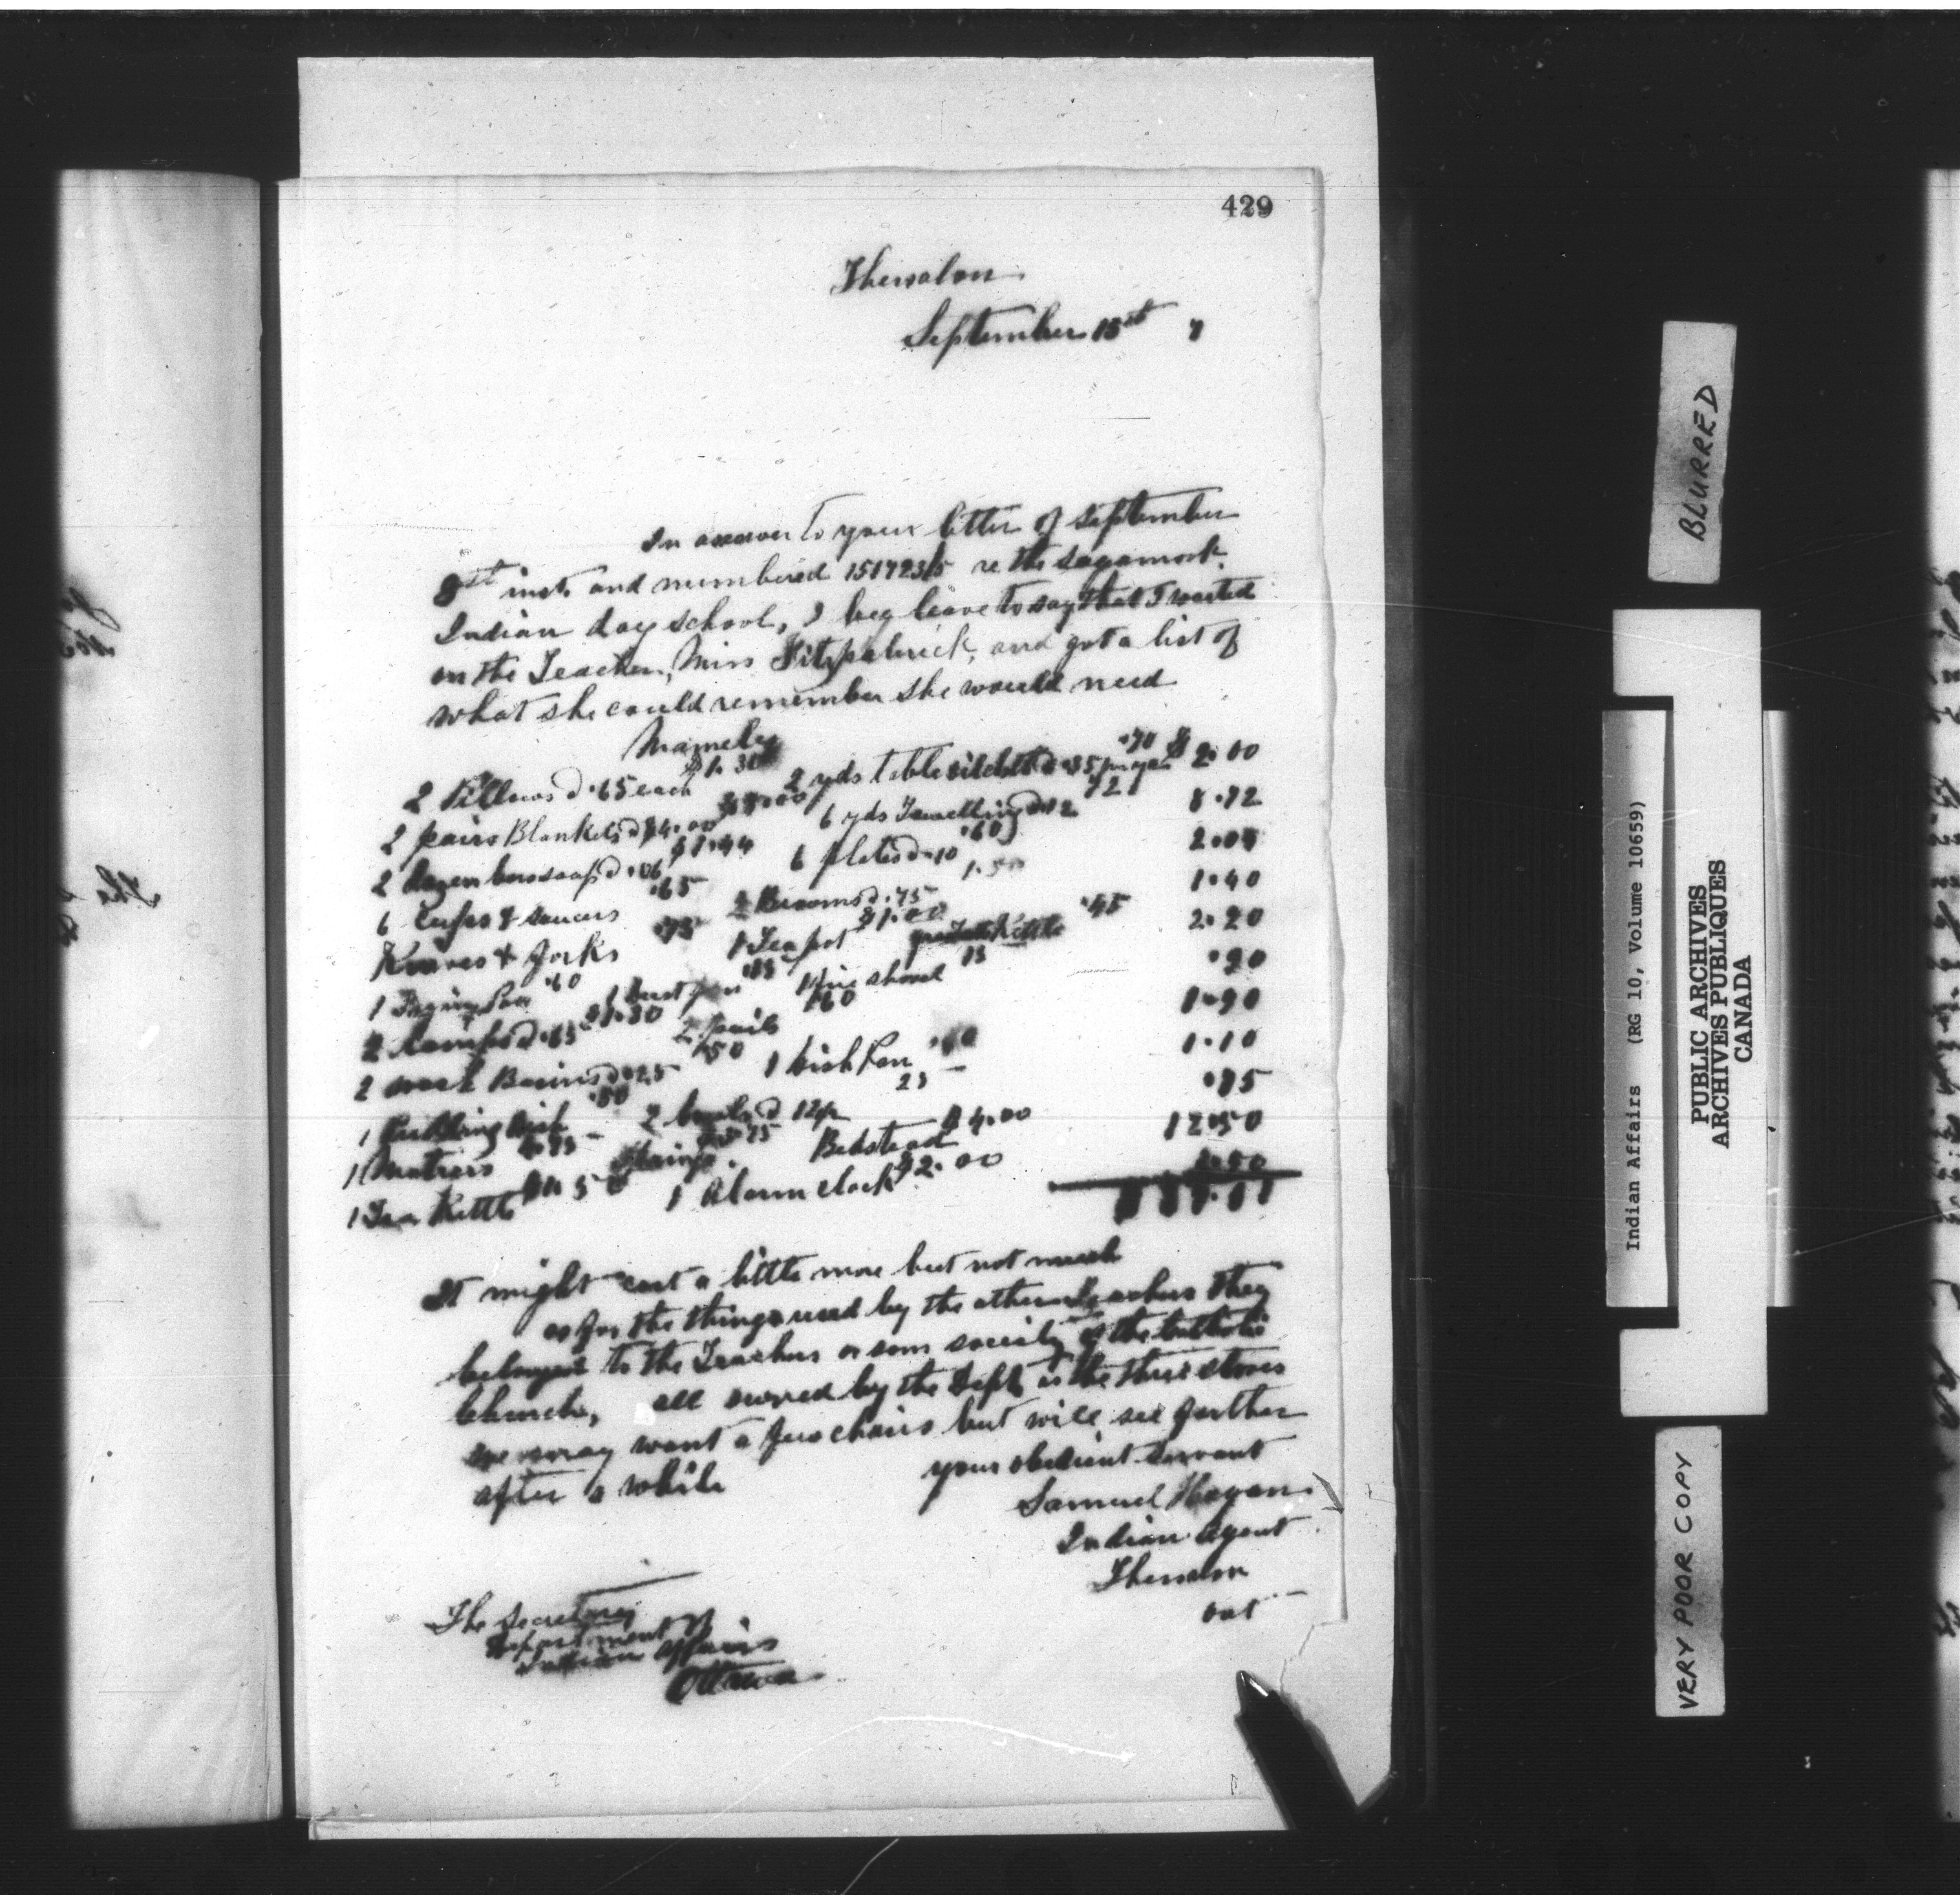 429
Thessalon
September 15st 7
In answer to your letter of September
8st inst and numbered 151723/5 re the Sagamook
Indian day school, I beg leave to say that I waited
on the Teacher, Miss Fitzpatrick, and got a list of
what she could remember she would need
Namely
2 Pillows @ .65 each $1.30 2 yds table oilcloth @ .35 per yd .70 $2.00
2 pairs Blankets @ $4.00 $8.00 6 yds Towelling @ .12 .72 8.72
2 dozen bars soap @ .06 $1.44 6 plates @ .10 .60 2.04
6 Cups & Saucers .65 2 Brooms @ .75 1.50
Knives & Forks .75 1 Tea pot $1.00 Kettle .45 2.20
1 Frying Pan .60 1 Dust pan .15 1 fire shovel 15 .90
2 Lamps @ .65 $1.30 2 pails .60 1.90
2 wash Basins @ .25 .50 1 Dish Pan .60 1.10
1 Pudding dish .50 2 bowls @ 12½ 25 .75
1 Matress Springs Bedstead $4.00 12.50
1 Tea Kettle $1.50 1 Alarm clock $2.00
It might cost a little more but not much
as for the things used by the other Teachers they
belonged to the Teachers or som society of the Catholic
Church, all owned by the Dept is the three stoves
we may want a few chairs but will see further
after a while
your obedient servant
Samuel Hagan
Indian Agent
Thessalon
Ont
The Secretary
Department of
Indian Affairs
Ottawa
BLURRED
Indian Affairs (RG 10, Volume 10659)
PUBLIC ARCHIVES
ARCHIVES PUBLIQUES
CANADA
VERY POOR COPY